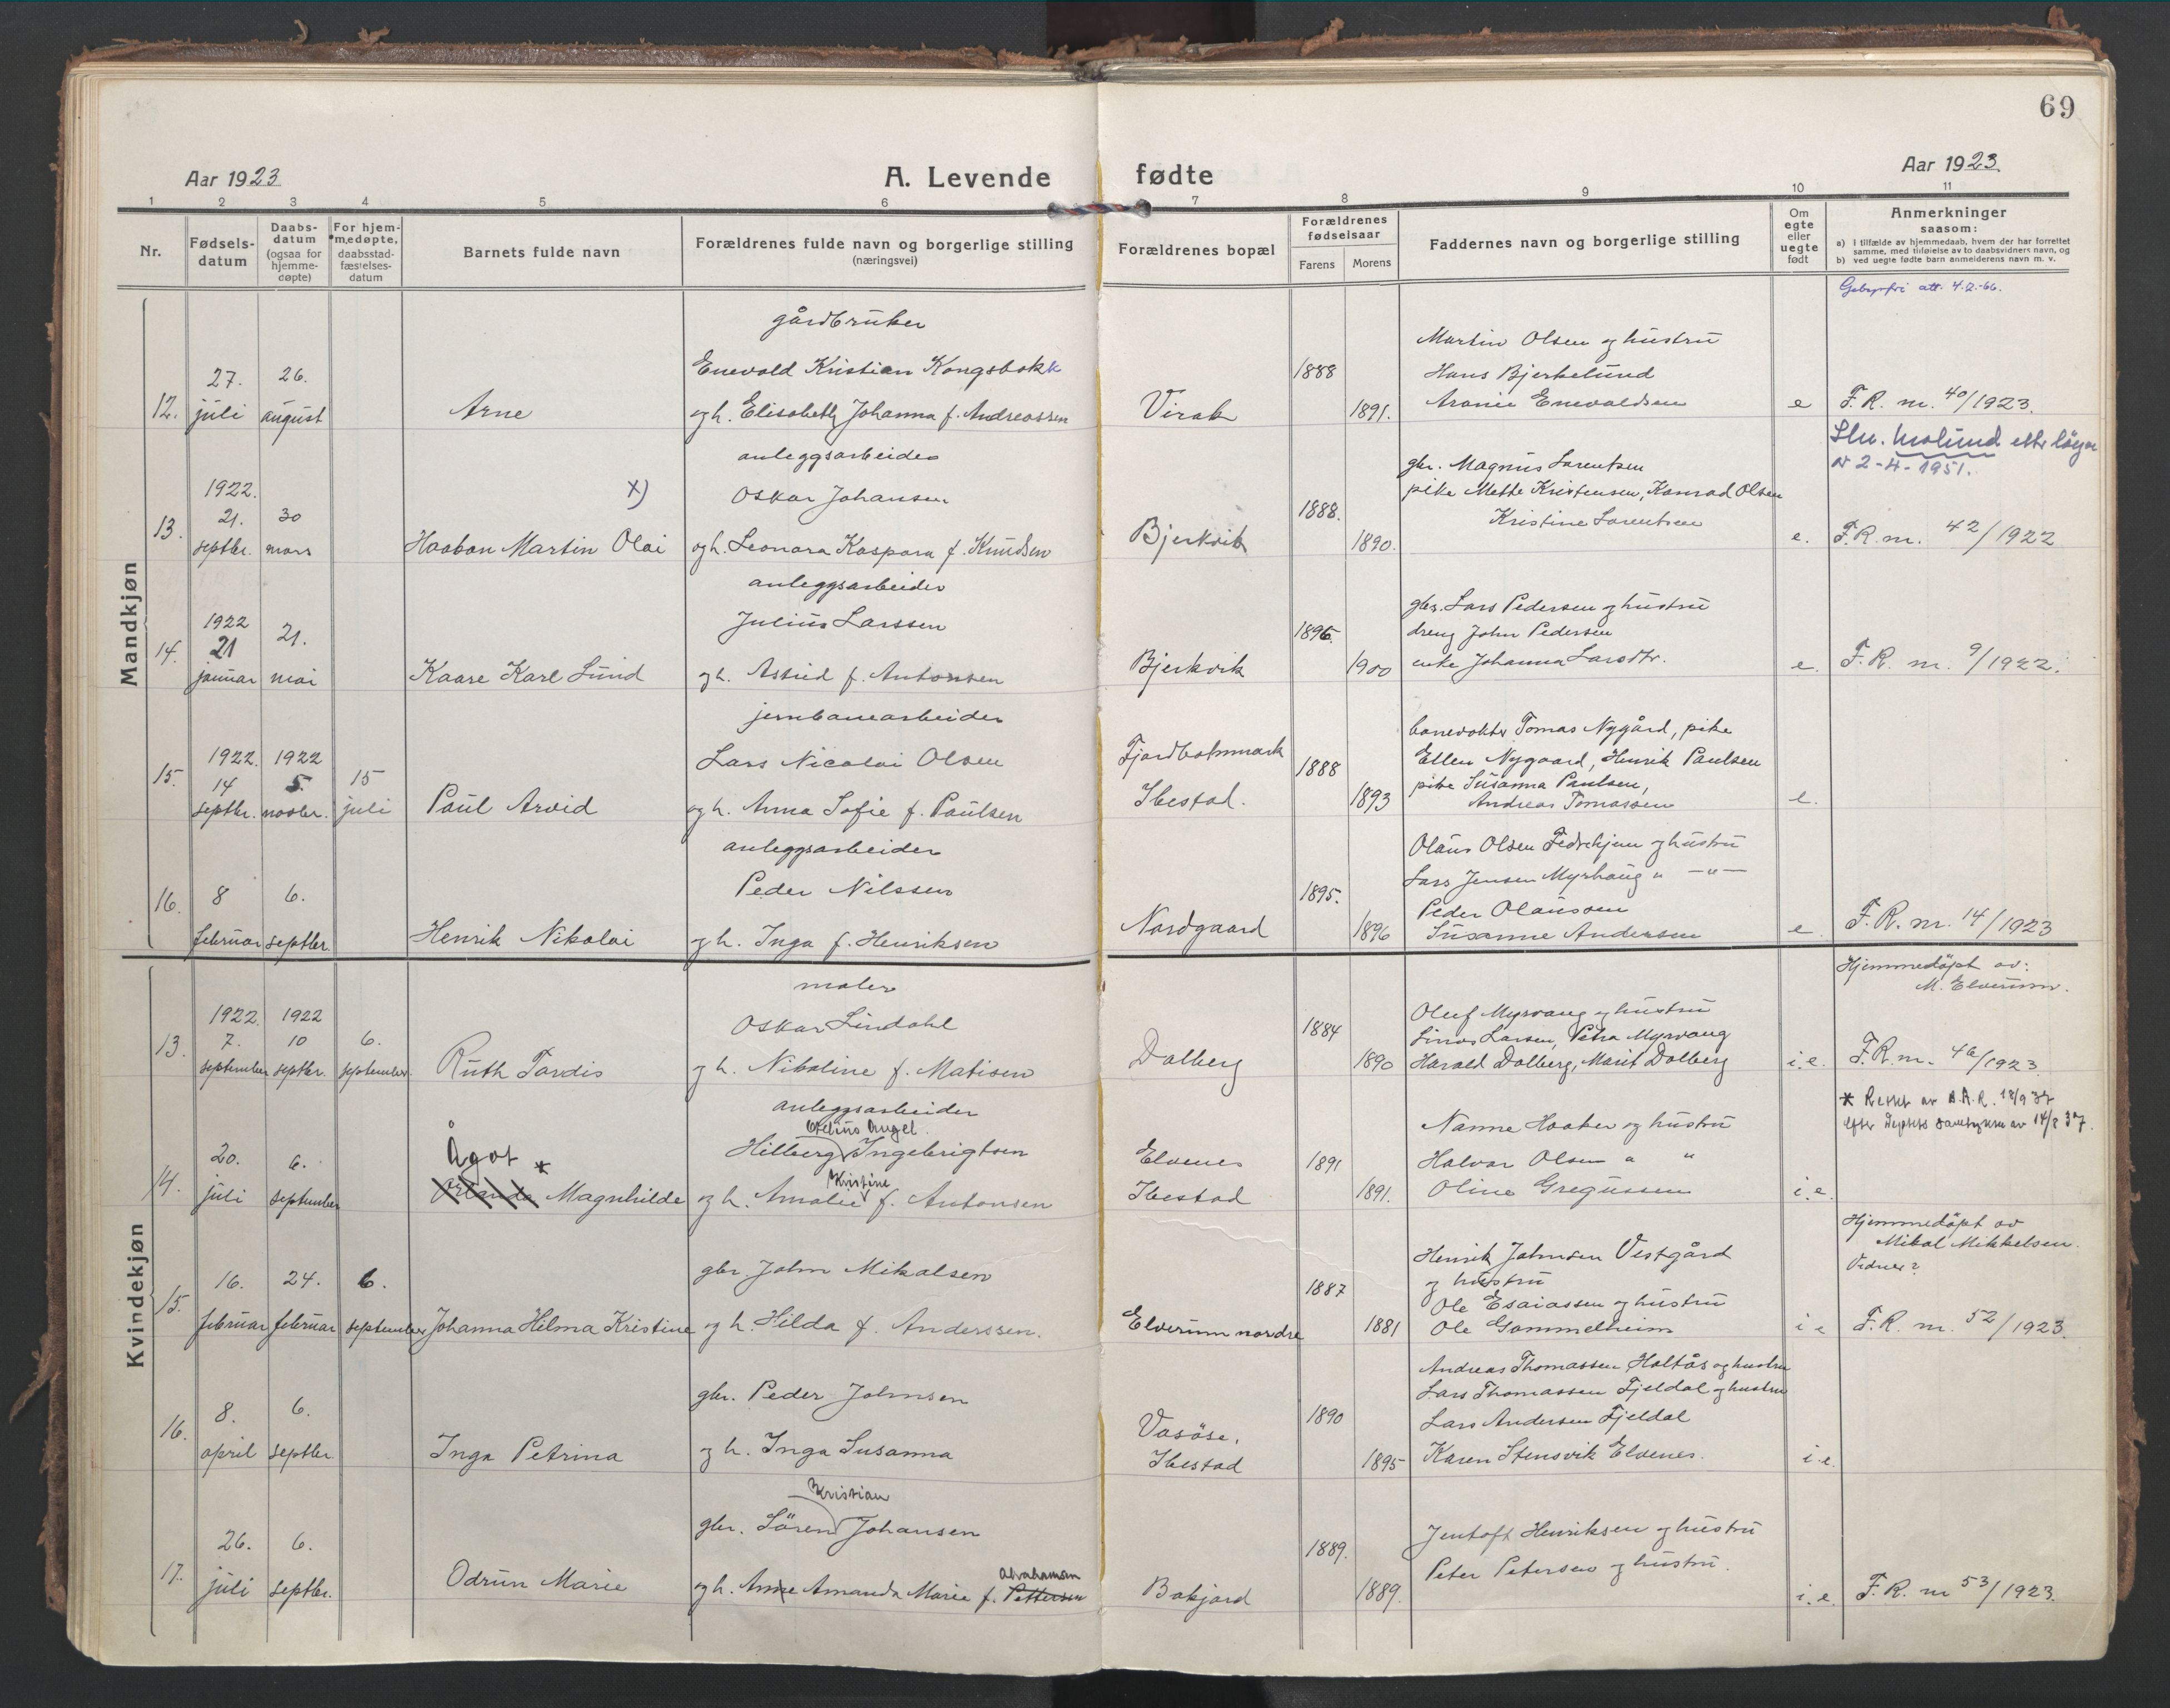 69
Aar 1923
A. Levende fødte
Aar 1923.
1 2 3 4 5 6 7 8 9 10 11
Nr.
Fødsels-
datum
Daabs-
datum
(ogsaa for
hjemme-
døpte)
For hjem-
medøpte,
daabsstad-
fæstelses-
datum
Barnets fulde navn
Forældrenes fulde navn og borgerlige stilling
(næringsvei)
Forældrenes bopæl
Forældrenes
fødselsaar
Farens Morens
Faddernes navn og borgerlige stilling
Om
egte
eller
uegte
født
Anmerkninger
saasom:
a) i tilfælde av hjemmedaab, hvem der har forrettet
samme, med tilføielse av to daabsvidners navn, og
b) ved uegte fødte barn anmelderens navn m. v.
Mandkjøn
12.
27.
juli
26.
august
Arne
gårdbruker
Enevold Kristian Kongsbakk
og h. Elisabeth Johanna f. Andreassen
Virak
1888
1891.
Martin Olsen og hustru
Hans Bjerkelund
Aranie Enevoldsen
e
Gebyrfri att. 4-2-66.
F. R. nr. 40/1923.
13.
1922.
21.
septbr.
30
mars
Haakon Martin Olai
x)
anleggsarbeider
Oskar Johansen
og h. Leonora Kaspara f. Knudsen
Bjerkvik
1888.
1890.
gbr. Magnus Lorentsen
pike Mette Kristensen, Konrad Olsen
Kristine Lorentsen
e.
av 2-4-1951.
F. R. nr. 42/1922
14.
1922
21
januar
21.
mai
Kaare Karl Lund
anleggsarbeider
Julius Larssen
og h. Astrid f. Antonsen
Bjerkvik
1896.
1900
gbr. Lars Pedersen og hustru
dreng John Pedersen
enke Johanna Larsdtr.
e.
F. R. nr. 9/1922.
15.
1922.
14
septbr.
1922
5.
novbr.
15
juli
Paul Arvid
jernbanearbeider
Lars Nicolai Olsen
og h. Anna Sofie f. Paulsen
Fjordbotnmark
Ibestad.
1888
1893
banevokter Tomas Nygård, pike
Ellen Nygaard, Henrik Paulsen
pike Susanna Paulsen,
Andreas Tomassen
e.
16.
8
februar
6.
septbr.
Henrik Nikolai
anleggsarbeider
Peder Nilssen
og h. Inga f. Henriksen
Nordgaard
1895.
1896
Olaus Olsen og hustru
Lars Jensen Myrhaug " —"—
Peder Olaussen
Susanne Andersen
e
F. R. nr. 14/1923
Kvindekjøn
13.
1922.
7.
september
1922
10
septbr.
6.
september.
Ruth Tordis
maler
Oskar Lindahl
og h. Nikoline f. Matisen
Dalberg
1884
1890
Oluf Myrvang og hustru
Larsen, Petra Myrvang
Harald Dalberg, Marit Dalberg
i.e.
Hjemmedöpt av:
M. Elverum.
F. R. nr. 46/1923
14.
20.
juli
6.
september
Ågot *
Magnhilde
anleggsarbeider
Angel.
Hilberg Ingebrigtsen
Kristine
og h. Amalie f. Antonsen
Elvenes
Ibestad
1891
1891.
Nanne Haaker og hustru
Halvar Olsen " "
Oline Gregussen
i.e.
* Rettet av A.A.R. 18/9 37
efter Deptets samtykke av 14/8 37.
15.
16.
februar
24.
februar
6.
september
Johanna Hilma Kristine
gbr. John Mikalsen
og h. Hilda f. Anderssen.
Elverum nordre
1887
1881
Henrik Johnsen Vestgård
og hustru
Ole Esaiassen og hustru
Ole Gammelheim
i e
Hjemmedöpt av
Mikal Mikkelsen.
Vidner?
F. R. nr. 52/1923.
16.
8.
april
6.
septbr
Inga Petrina
gbr. Peder Johnsen
og h. Inga Susanna
Vasöse,
Ibestad
1890
1895
Andreas Thomassen Holtås og hustru
Lars Thomassen Fjeldal og hustru
Lars Andersen Fjeldal
Karen Stensvik Elvenes.
i.e.
17.
26.
juli
6.
septbr.
Odrun Marie
Kristian
gbr. Sören Johansen
Abrahamsen
og h. Anne Amanda Marie f. Pettersen
Bakjord
1889.
1889.
Jentoft Henriksen og hustru
Peter Petersen og hustru.
i. e.
F. R. nr 53/1923.